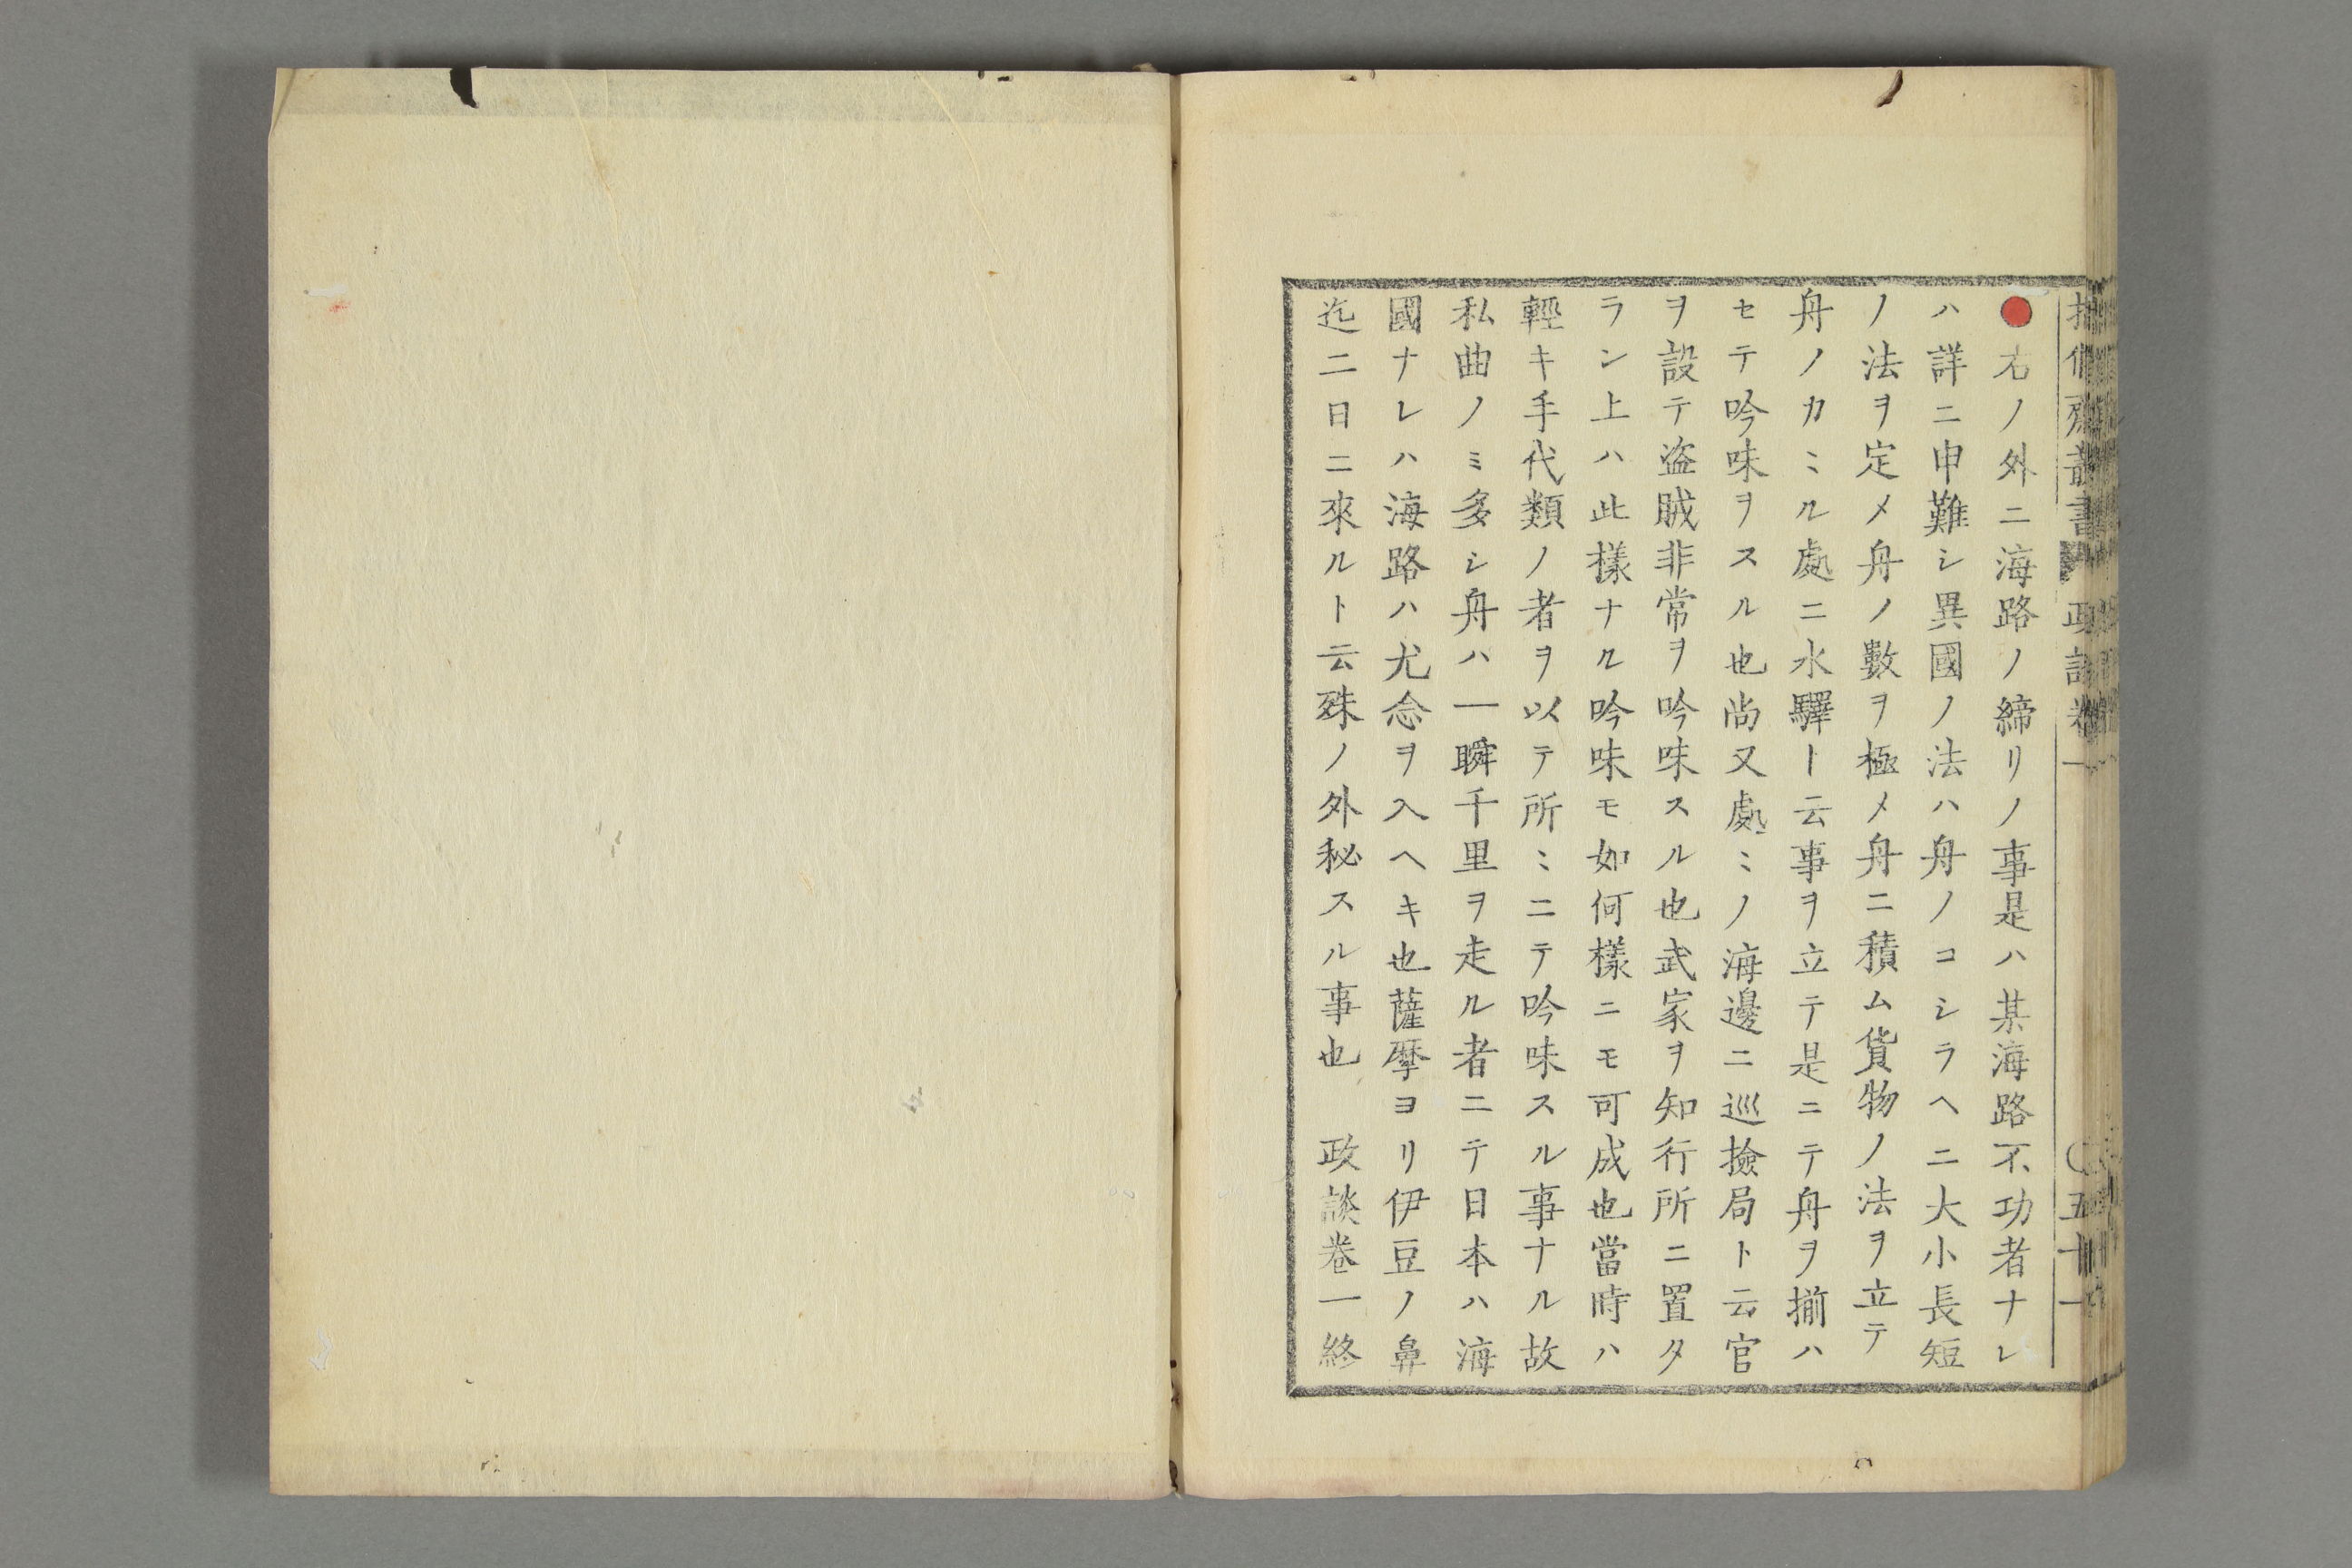 ●右ノ外ニ海路ノ締リノ事是ハ某海路不功者ナレ
ハ詳ニ申難シ異國ノ法ハ舟ノコシラヘニ大小長短
ノ法ヲ定メ舟ノ數ヲ極メ舟ニ積ム貨物ノ法ヲ立テ
舟ノカヽル處ニ水驛ト云事ヲ立テ是ニテ舟ヲ揃ハ
セテ吟味ヲスル也尚又處ミノ海邊ニ巡撿局ト云官
ヲ設テ盗賊非常ヲ吟味スル也武家ヲ知行所ニ置タ
ラン上ハ此樣ナル吟味モ如何樣ニモ可成也當時ハ
輕キ手代類ノ者ヲ以テ所ミニテ吟味スル事ナル故
私曲ノミ多シ舟ハ一瞬千里ヲ走ル者ニテ日本ハ海
國ナレハ海路ハ尤念ヲ入ヘキ也薩摩ヨリ伊豆ノ鼻
迄二日ニ來ルト云殊ノ外秘スル事也 政談卷一終